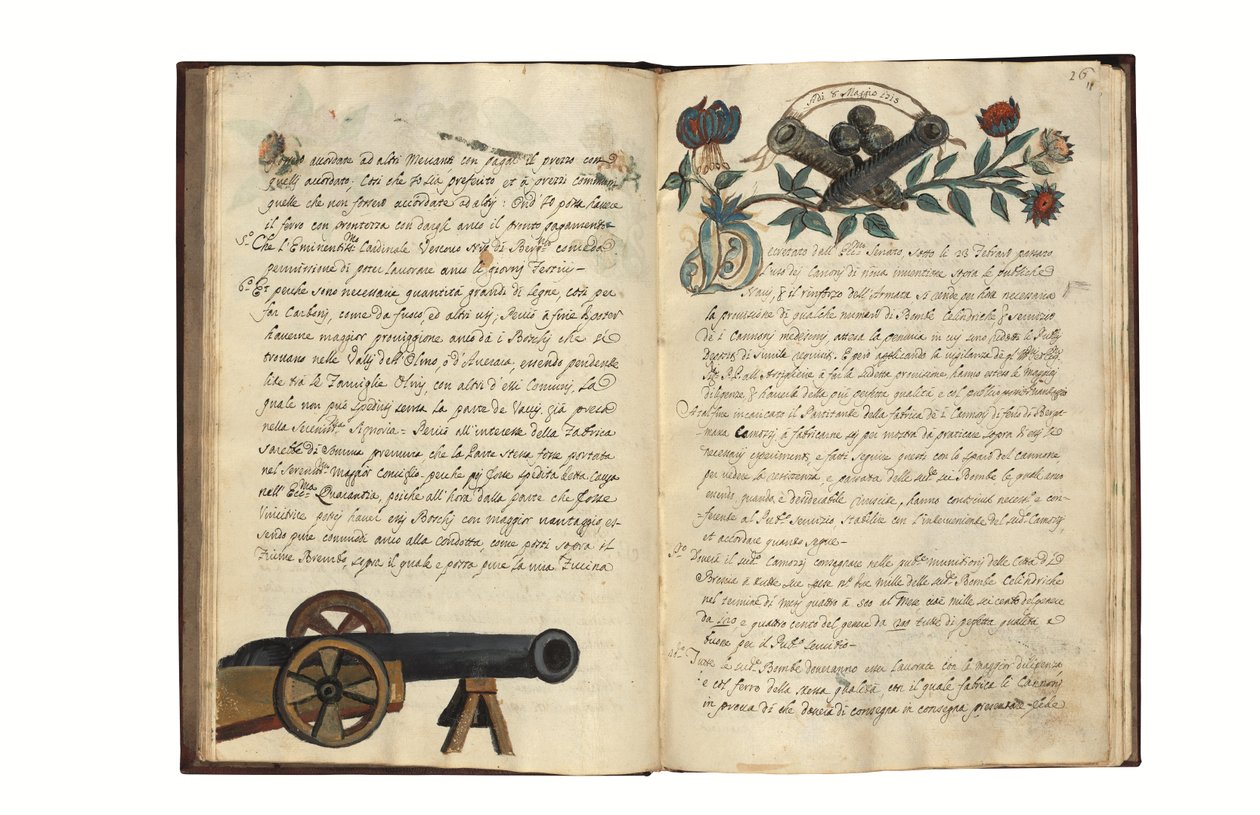 accordate ad altri Mercanti con pagar il prezzo con
quelli accordato. Così che io sia preferito et à prezzi communi
quelle che non fossero accordate ad altri: Ond' Io possa havere
il ferro con prontezza con dargli anco il pronto pagamento
5.º Che l'Eminentissmo Cardinale Vescovo Nro di Bergmo conceda
permissione di poter lavorare anco li giorni Festivi-
6.º Et perche sono necessarie quantità grandi di legne, così per
far Carboni, come da fuoco, ed altri usi; Perciò à fine poter
haverne maggior provvigione anco dà i Boschi che si
trovano nelle Valli dell'Olmo, ò d'Averara, essendo pendente
lite trà le Famiglie Olmi, con altri d'essi Comuni, la
quale non può spedirsi senza la parte de
nella Serenissma Signoria = Perciò all'interesse della Fabrica
sarebbe di somma premura che la Parte stessa fosse portata
nel Serenmo Maggior Consiglio, perche poi fosse spedita detta Causa
nell' Eccma Quarantia, perche all'hora dalla parte che fosse
Vincitrice potrei haver essi Boschi con maggior vantaggio, es-
sendo pure comodi anco alla condotta, come posti sopra il
Fiume Brembo, sopra il quale è posta pure la mia Fucina
26
Adi 8 Maggio 1715
Decretato dall' Eccmo Senato, sotto li 23 Febraro passato
l'uso dei Canoni di nova inventione sopra le publiche
Navi, & il rinforzo dell'Armata si rende per hora necessaria
la provisione di qualche numero di Bombe Celindriche, & servizio
de i Cannoni medesimi, attesa la penuria in cui sono ridotti li Publici
Depositi di simile requisiti. E però applicando la vigilanza de
P.P. all'Artiglierie à far la sudetta provisione, hanno estese le maggiori
diligenze & haverle della più perfetta qualità e col publico
A tal fine incaricato il Partitante della fabrica de i Cannoni di ferro di Berga-
-masca Camozzi à fabricarne sei per mostra da praticare sopra di essi li
necessarij esperimenti, e fatti seguire questi con lo sparo del Cannone
per vedere la resistenza, e passata delle sudte sei Bombe le quali
essendo quanto è desiderabile riuscite, hanno continui necessi e con-
-ferente al Pubco Servizio stabilire con l'intervenimento del sudto Camozzi,
et accordare quanto segue-
Pmo Doverà il sudto Camozzi consegnare nelle pubce munitioni della Città di
Brescia à tutte sue spese no due mille delle sudte Bombe Celindriche
nel termine di mesi quattro à 500 al Mese cioè mille sei cento del genere
da 120 e quattro cento del genere da 200 tutte di perfetta qualità e
buone per il Pubco servitio-
2do Tutte le sudte Bombe doveranno esser lavorate con la maggior diligenza
e col ferro della stessa qualità, con il quale fabrica li Cannoni
in prova di che doverà di consegna in consegna presentare fede